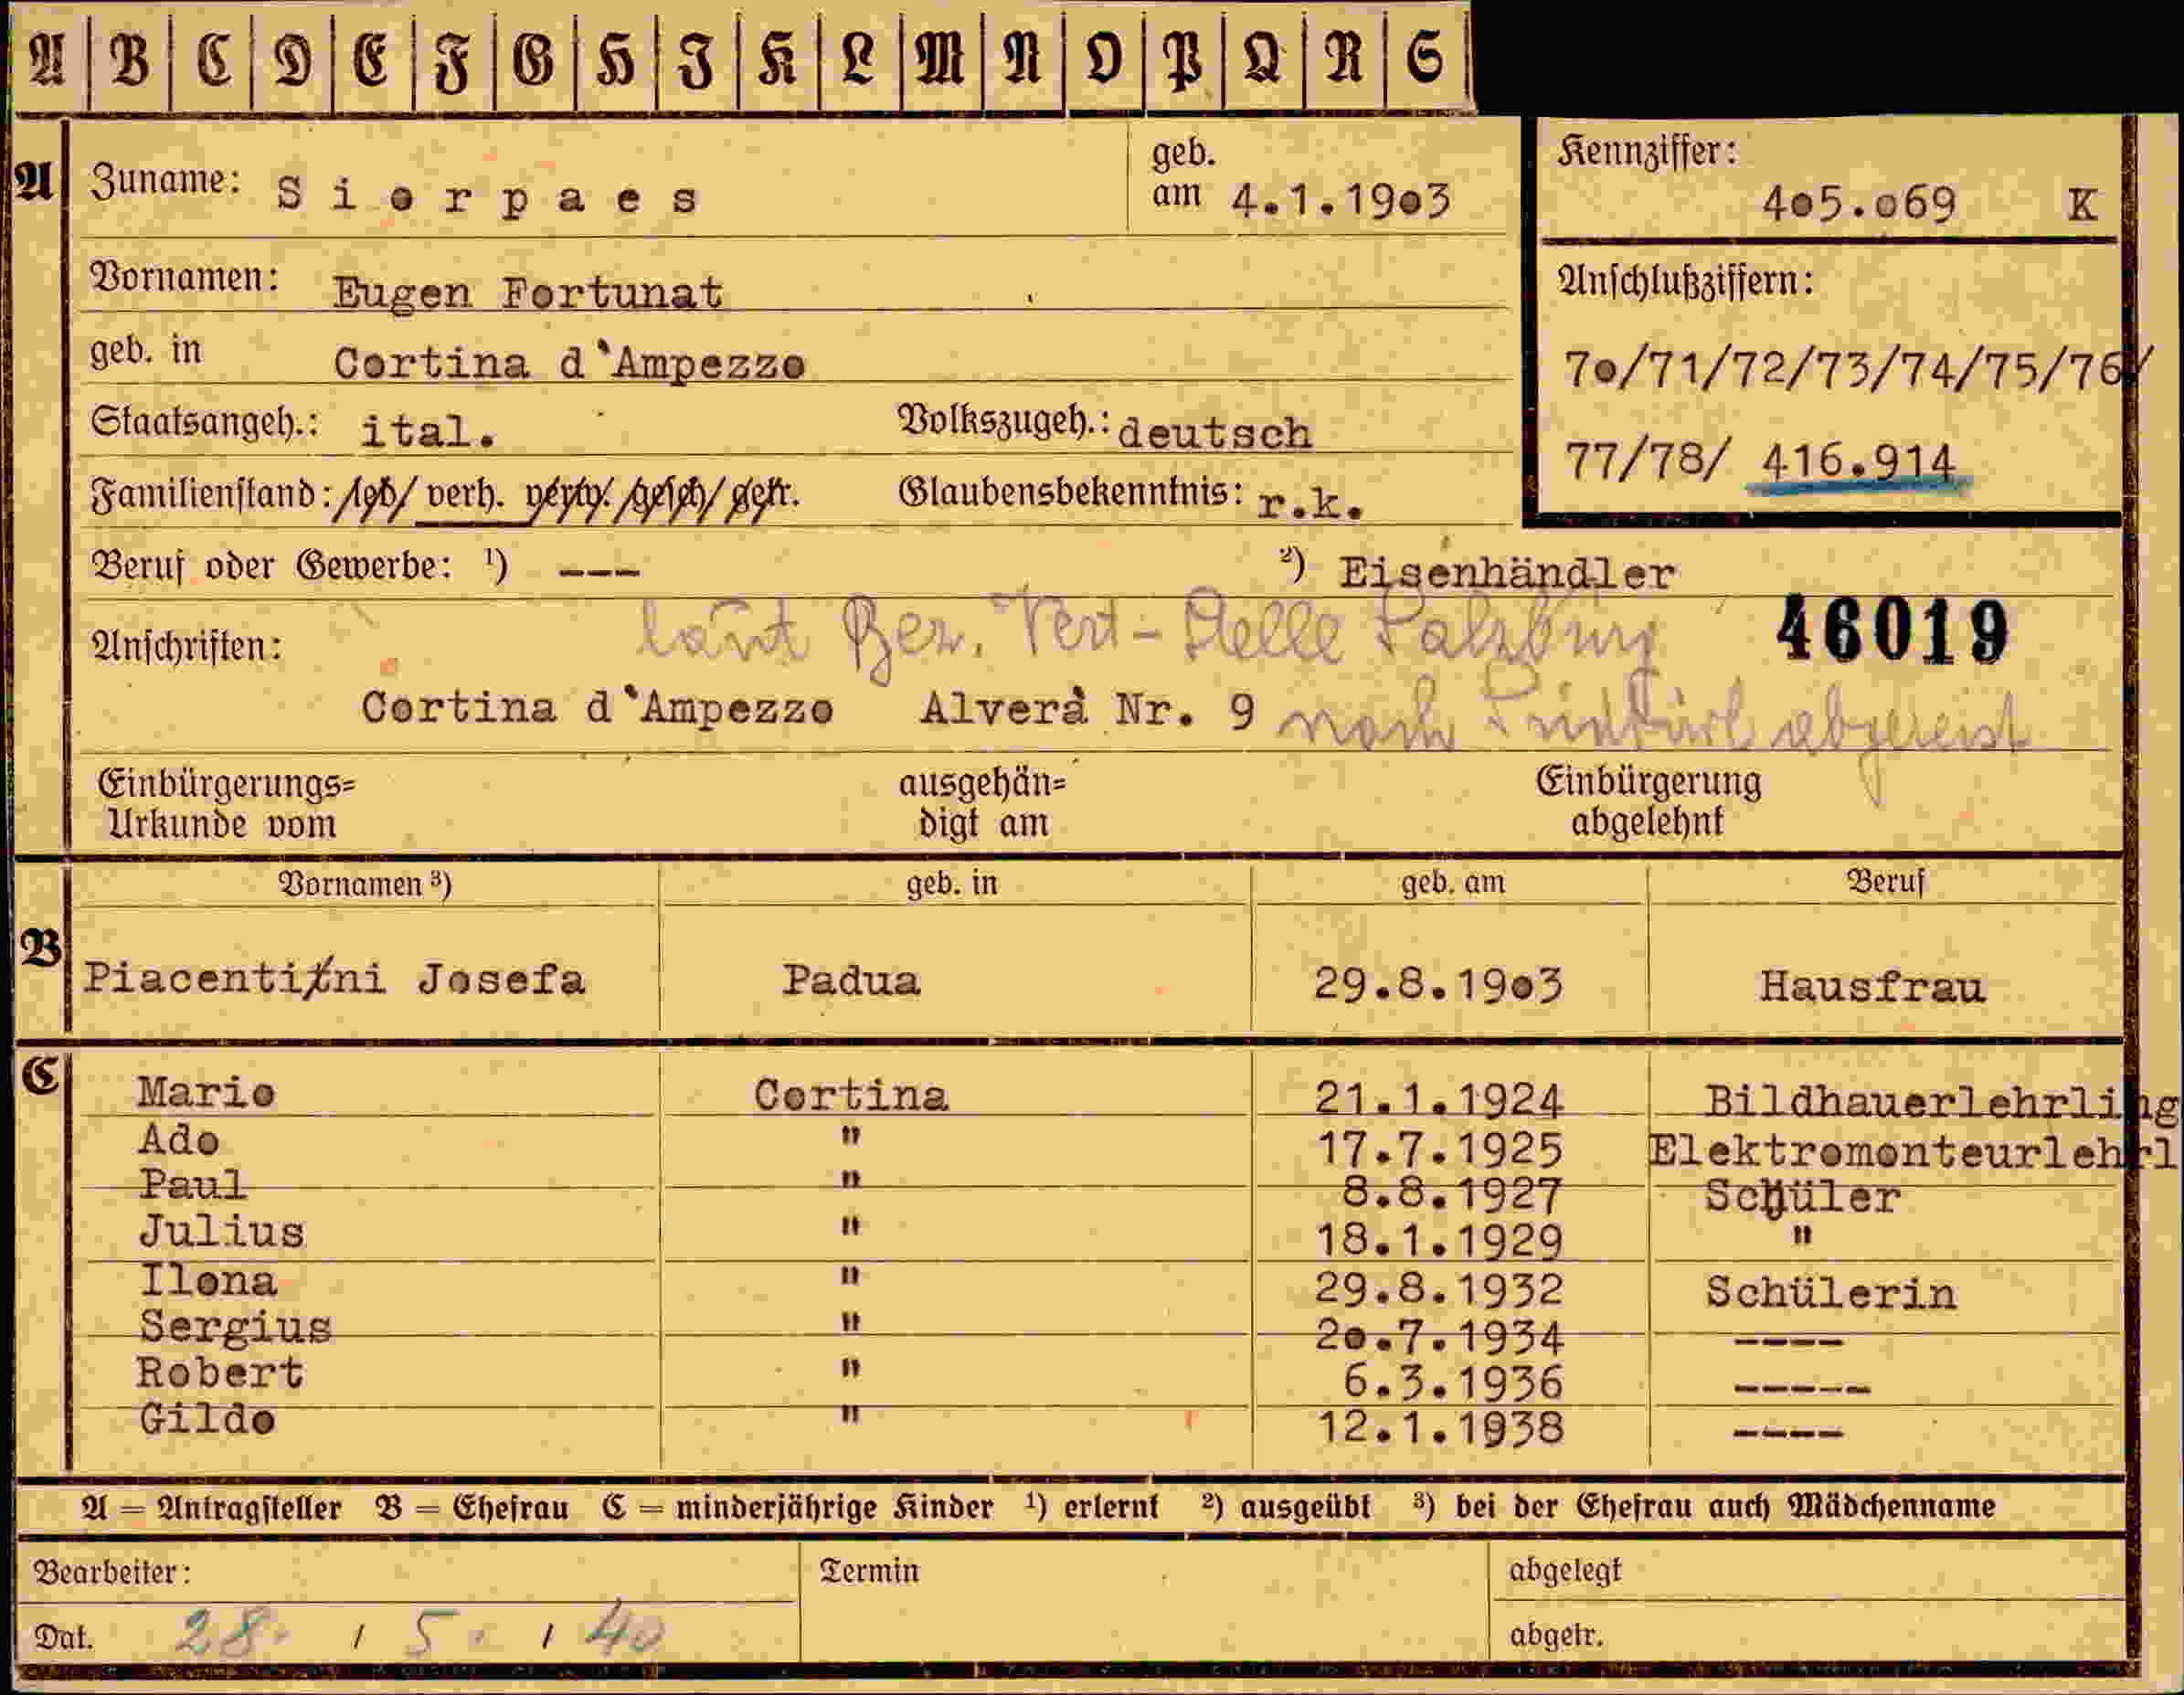 A B C D E F G H I K L M N O P Q R S
A Zuname: Siorpaes geb. am 4.1.1903 Kennziffer: 405.069 K
Vornamen: Eugen Fortunat Anschlußziffern:
geb. in Cortina d'Ampezzo 70/71/72/73/74/75/76/
Staatsangeh.: ital. Volkszugeh.: deutsch 77/78/ 416.914
Familienstand: led/ verh. verw. /gesch/ getr. Glaubensbekenntnis: r.k.
Beruf oder Gewerbe: ¹) --- ²) Eisenhändler
laut Bez. Vert-Stelle Salzburg 46019
Anschriften:
Cortina d'Ampezzo Alverà Nr. 9 nach Südtirol abgereist
Einbürgerungs= ausgehän= Einbürgerung
Urkunde vom digt am abgelehnt
Vornamen ³) geb. in geb. am Beruf
B Piacentini Josefa Padua 29.8.1903 Hausfrau
C Mario Cortina 21.1.1924 Bildhauerlehrling
Ado " 17.7.1925 Elektromonteurlehrl
Paul " 8.8.1927 Schüler
Julius " 18.1.1929 "
Ilona " 29.8.1932 Schülerin
Sergius " 20.7.1934 ----
Robert " 6.3.1936 -----
Gildo " 12.1.1938 ----
A = Antragsteller B = Ehefrau C = minderjährige Kinder ¹) erlernt ²) ausgeübt ³) bei der Ehefrau auch Mädchenname
Bearbeiter: Termin abgelegt
Dat. 28. / 5. / 40 abgetr.